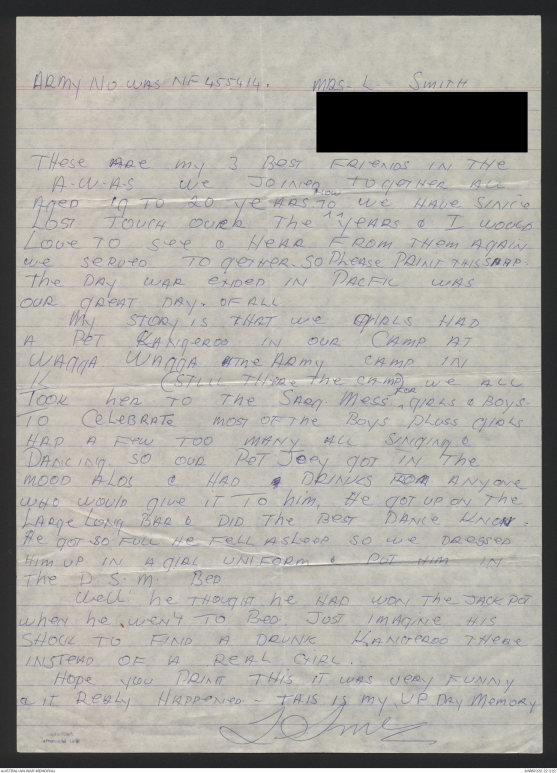 ARMY NO WAS NF455414. MRS. L. SMITH
THESE ARE MY 3 BEST FRIENDS IN THE
A-W-A-S WE JOINED TOGETHER ALL
AGED 19 TO 20 YEARS TO NOW WE HAVE SINCE
LOST TOUCH OVER THE YEARS & I WOULD
LOVE TO SEE & HEAR FROM THEM AGAIN
WE SERVED TOGETHER. SO PLEASE PRINT THIS SNAP.
THE DAY WAR ENDED IN PACFIC WAS
OUR GREAT DAY. OF ALL
MY STORY IS THAT WE GIRLS HAD
A PET KANGEROO IN OUR CAMP AT
WAGGA WAGGA THE ARMY CAMP IN
(STILL THERE THE CAMP) WE ALL
TOOK HER TO THE SARG. MESS FOR GIRLS & BOYS.
TO CELEBRATE MOST OF THE BOYS PLUSS GIRLS
HAD A FEW TOO MANY ALL SINGING &
DANCING. SO OUR PET JOEY GOT IN THE
MOOD ALSO & HAD DRINKS FROM ANYONE
WHO WOULD GIVE IT TO HIM, HE GOT UP ON THE
LARGE LONG BAR & DID THE BEST DANCE KNOWN.
HE GOT SO FULL HE FELL ASLEEP SO WE DRESSED
HIM UP IN A GIRL UNIFORM & PUT HIM IN
THE D.S.M. BED
WELL! HE THOUGHT HE HAD WON THE JACKPOT
WHEN HE WENT TO BED. JUST IMAGINE HIS
SHOCK TO FIND A DRUNK KANGEROO THERE
INSTEAD OF A REAL GIRL.
HOPE YOU PRINT THIS IT WAS VERY FUNNY
& IT REALY HAPPENED - THIS IS MY VP DAY MEMORY
AUSTRALIAN WAR MEMORIAL